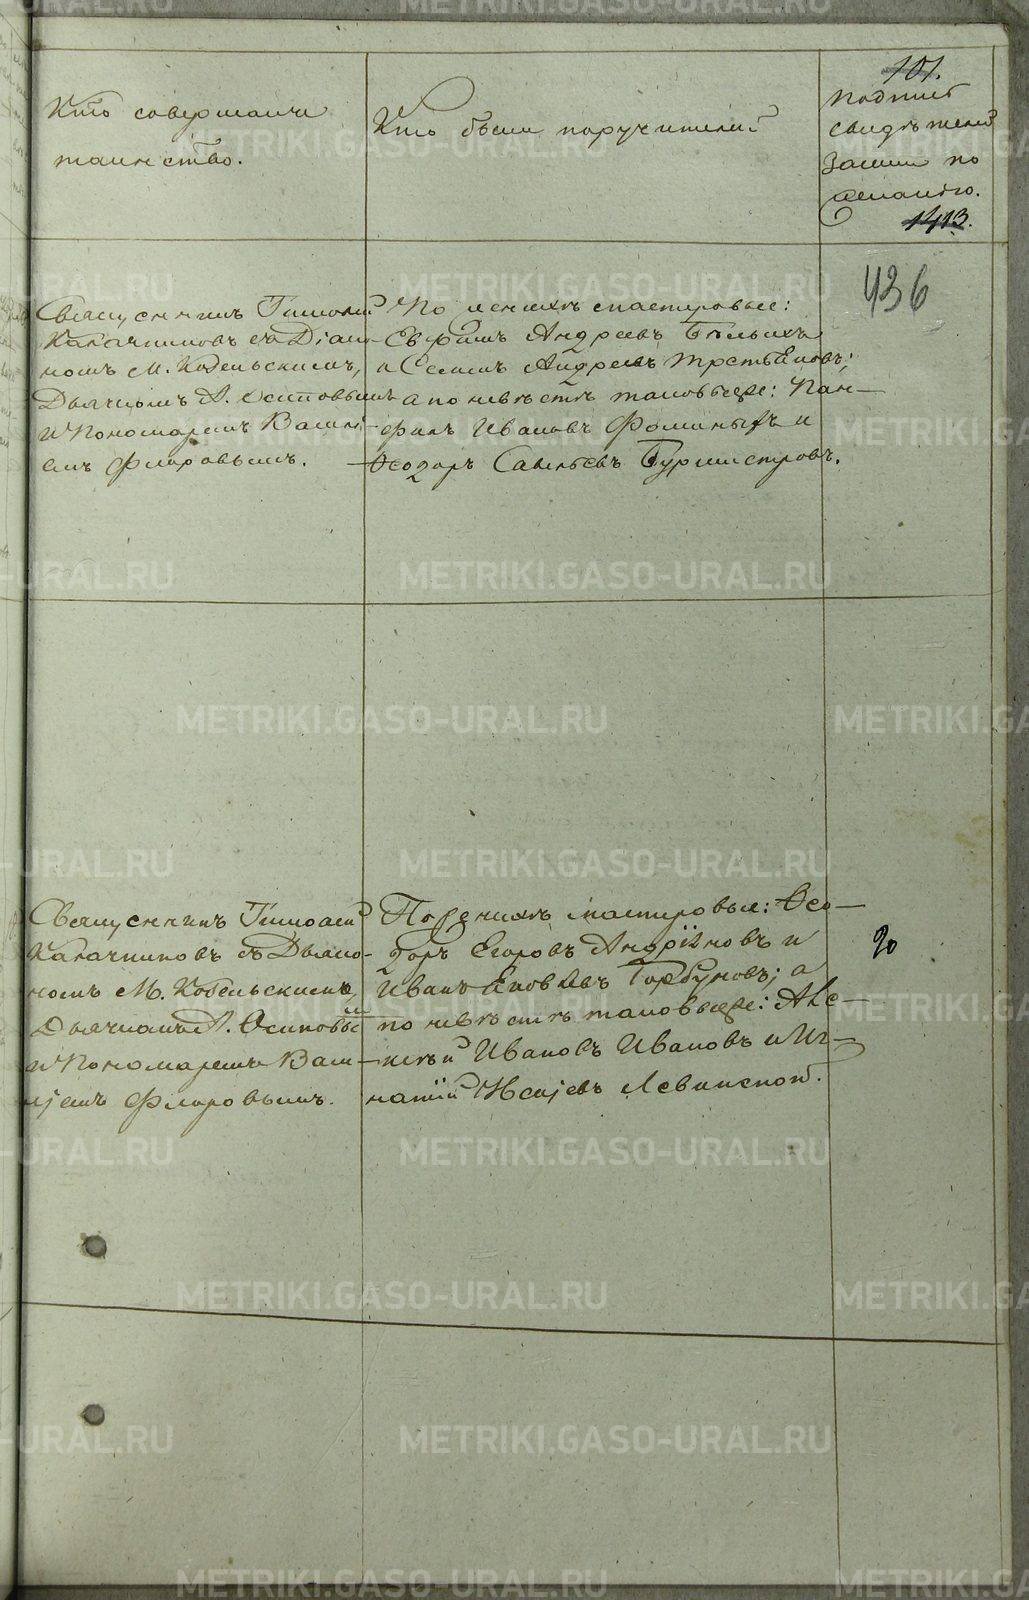 101.
Кто совершалъ
таинство.
Кто были поручители
Подпись
свидѣтелей
записи по
желанію.
1413.
436
Священникъ Тимоѳей
Калачниковъ съ Діако-
номъ М. Кобельскимъ,
Дьячкомъ А. Осиповымъ
и Пономаремъ Василі-
емъ Флоровымъ.
По женихѣ мастеровые:
Ефимъ Андреевъ Бѣлыхъ
и Семенъ Андреевъ Третьяковъ;
а по невѣстѣ таковыеже: Пан-
филъ Ивановъ Фоминыхъ и
Ѳеодоръ Савельевъ Бурмистровъ.
Священникъ Тимоѳей
Калачниковъ съ Дьяко-
номъ М. Кобельскимъ,
Дьячкомъ А. Осиповымъ
и Пономаремъ Васи-
ліемъ Флоровымъ.
По женихѣ мастеровые: Ѳео-
доръ Егоровъ Андрїяновъ и
Иванъ Яковлевъ Горбуновъ; а
по невѣстѣ таковыеже: Алек-
сѣй Ивановъ Ивановъ и Иг-
натій Исаіевъ Левинской.
20
METRIKI.GASO-URAL.RU